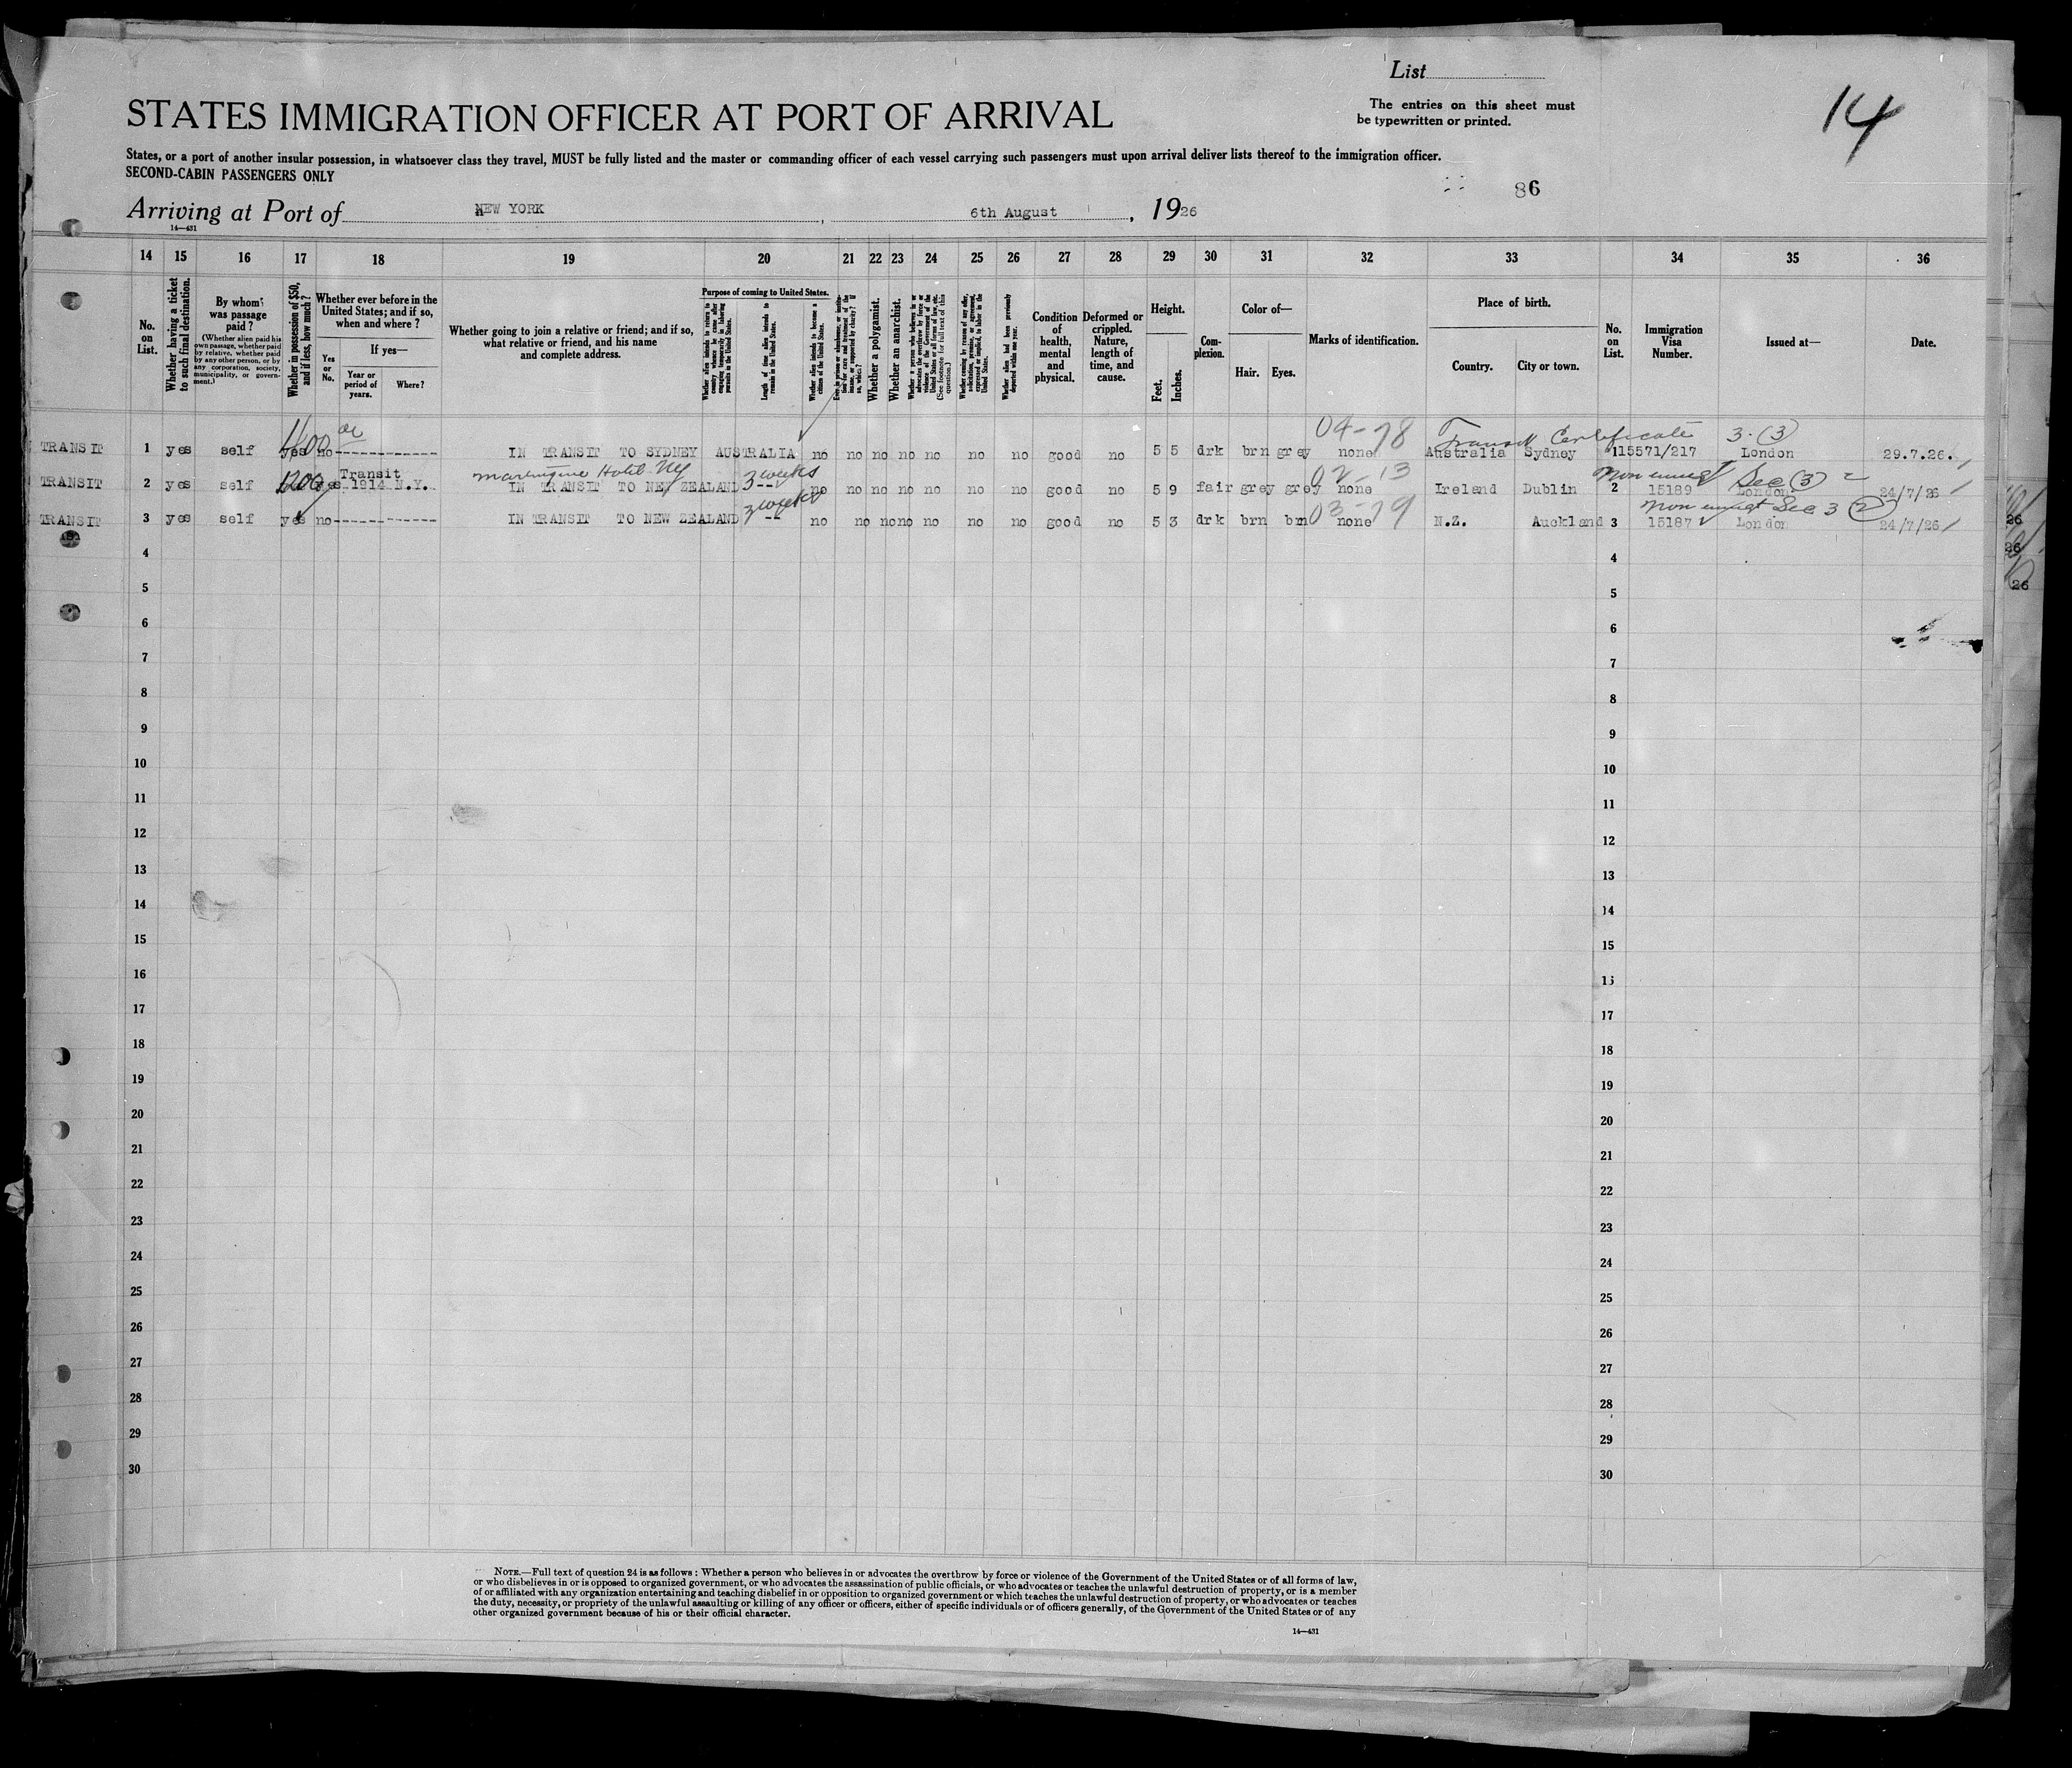 List
14
STATES IMMIGRATION OFFICER AT PORT OF ARRIVAL
The entries on this sheet must
be typewritten or printed.
States, or a port of another insular possession, in whatsoever class they travel, MUST be fully listed and the master or commanding officer of each vessel carrying such passengers must upon arrival deliver lists thereof to the immigration officer.
SECOND-CABIN PASSENGERS ONLY
86
Arriving at Port of NEW YORK, 6th August, 1926
14—431
14 15 16 17 18 19 20 21 22 23 24 25 26 27 28 29 30 31 32 33 34 35 36
No. on List.
Whether having a ticket to such final destination.
By whom was passage paid?
(Whether alien paid his own passage, whether paid by relative, whether paid by any other person, or by any corporation, society, municipality, or government.)
Whether in possession of $50, and if less, how much?
Whether ever before in the United States; and if so, when and where?
Yes or No.
If yes—
Year or period of years.
Where?
Whether going to join a relative or friend; and if so, what relative or friend, and his name and complete address.
Purpose of coming to United States.
Whether alien intends to return to country whence he came after engaging temporarily in laboring pursuits in the United States.
Length of time alien intends to remain in the United States.
Whether alien intends to become a citizen of the United States.
Ever in prison or almshouse, or institution for care and treatment of the insane, or supported by charity? If so, which?
Whether a polygamist.
Whether an anarchist.
Whether a person who believes in or advocates the overthrow by force or violence of the Government of the United States or all forms of law, etc. (See footnote for full text of this question.)
Whether coming by reason of any offer, solicitation, promise, or agreement, expressed or implied, to labor in the United States.
Whether alien had been previously deported within one year.
Condition of health, mental and physical.
Deformed or crippled. Nature, length of time, and cause.
Height.
Feet.
Inches.
Complexion.
Color of—
Hair. Eyes.
Marks of identification.
Place of birth.
Country. City or town.
No. on List.
Immigration Visa Number.
Issued at—
Date.
400 04-78 Transit Certificate 3.(3)
TRANSIT 1 yes self yes no IN TRANSIT TO SYDNEY AUSTRALIA no no no no no no no good no 5 5 drk brn grey none Australia Sydney 1 15571/217 London 29.7.26.
1200 Transit Hotel NY 3 weeks 02-13 Non immgt Sec (3) 2
TRANSIT 2 yes self yes 1914 N.Y. IN TRANSIT TO NEW ZEALAND -- no no no no no no no good no 5 9 fair grey grey none Ireland Dublin 2 15189 London 24/7/26
3 weeks 03-79 Non immgt Sec 3 (2)
TRANSIT 3 yes self yes no IN TRANSIT TO NEW ZEALAND -- no no no no no no no good no 5 3 drk brn brn none N.Z. Auckland 3 15187 London 24/7/26
26
26
26
4 4
5 5
6 6
7 7
8 8
9 9
10 10
11 11
12 12
13 13
14 14
15 15
16 16
17 17
18 18
19 19
20 20
21 21
22 22
23 23
24 24
25 25
26 26
27 27
28 28
29 29
30 30
NOTE.—Full text of question 24 is as follows: Whether a person who believes in or advocates the overthrow by force or violence of the Government of the United States or of all forms of law,
or who disbelieves in or is opposed to organized government, or who advocates the assassination of public officials, or who advocates or teaches the unlawful destruction of property, or is a member
of or affiliated with any organization entertaining and teaching disbelief in or opposition to organized government or which teaches the unlawful destruction of property, or who advocates or teaches
the duty, necessity, or propriety of the unlawful assaulting or killing of any officer or officers, either of specific individuals or of officers generally, of the Government of the United States or of any
other organized government because of his or their official character.
14—431